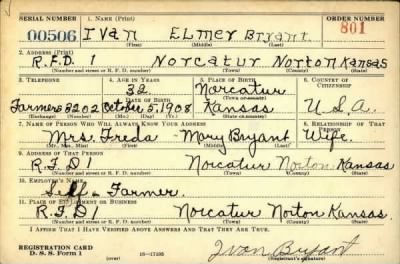 SERIAL NUMBER 1. NAME (Print) ORDER NUMBER
00506 Ivan Elmer Bryant 801
(First) (Middle) (Last)
2. ADDRESS (Print)
R.F.D. 1 Norcatur Norton Kansas
(Number and street or R. F. D. number) (Town) (County) (State)
3. TELEPHONE 4. AGE IN YEARS 5. PLACE OF BIRTH 6. COUNTRY OF CITIZENSHIP
32 Norcatur
DATE OF BIRTH (Town or county)
Farmers 8202 October 5, 1908 Kansas U.S.A.
(Exchange) (Number) (Mo.) (Day) (Yr.) (State or country)
7. NAME OF PERSON WHO WILL ALWAYS KNOW YOUR ADDRESS 8. RELATIONSHIP OF THAT PERSON
Mrs. Freda Mary Bryant Wife.
(Mr., Mrs., Miss) (First) (Middle) (Last)
9. ADDRESS OF THAT PERSON
R.F.D 1 Norcatur Norton Kansas
(Number and street or R. F. D. number) (Town) (County) (State)
10. EMPLOYER'S NAME
Self - Farmer.
11. PLACE OF EMPLOYMENT OR BUSINESS
R.F.D 1 Norcatur Norton Kansas.
(Number and street or R. F. D. number) (Town) (County) (State)
I AFFIRM THAT I HAVE VERIFIED ABOVE ANSWERS AND THAT THEY ARE TRUE.
REGISTRATION CARD
D. S. S. Form 1 (over) 16-17105 Ivan Bryant